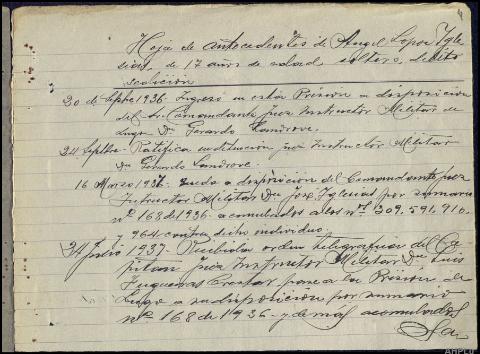 Hoja de antecedentes de Angel Lopez Ygle
sias, de 17 años de edad soltero, delito
sedición
20 de Septbre 1936. Ingresó en esta Prision a disposicion
del Sr. Comandante Juez Instructor Militar de
Lugo Dn Gerardo Landrove.
24 Septbre- Ratifica Juez Instructor Militar
Dn Gerardo Landrove.
16 Marzo 1937- queda a disposicion del Comandante Juez
Instructor Militar Dn José Iglesias por sumario
nº 168 de 1936 acumulados a los nº 209. 591, 910.
y 964 contra dicho individuo
24 Julio 1937- Recibida orden telegrafica del Ca
pitan Juez Instructor Militar Dn Luis
pase a la Prision de
Lugo a su disposicion por sumario
nº 168 de 1936 y demas acumulados
AHPLU